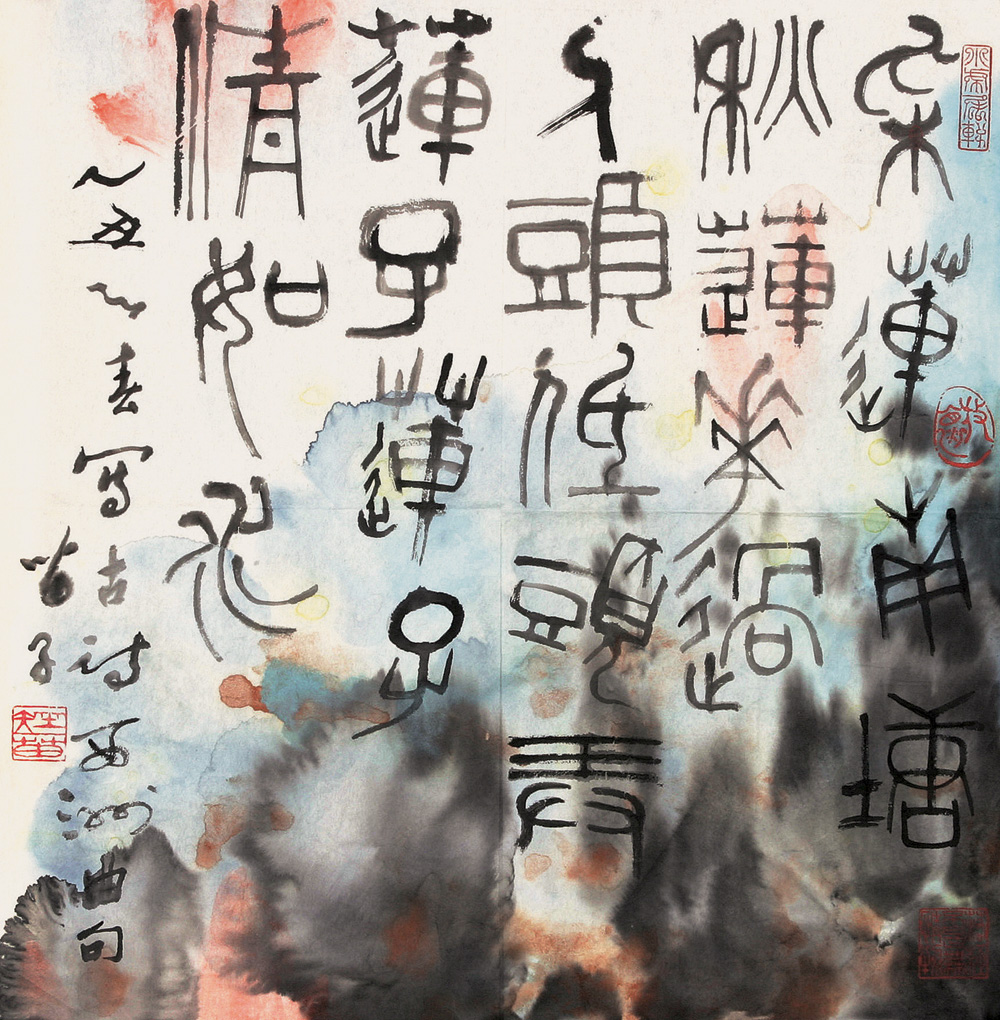 采蓮南塘
秋蓮花過
人頭低頭弄
蓮子蓮子
清如水
乙丑之春寫古詩西洲曲句
苗子